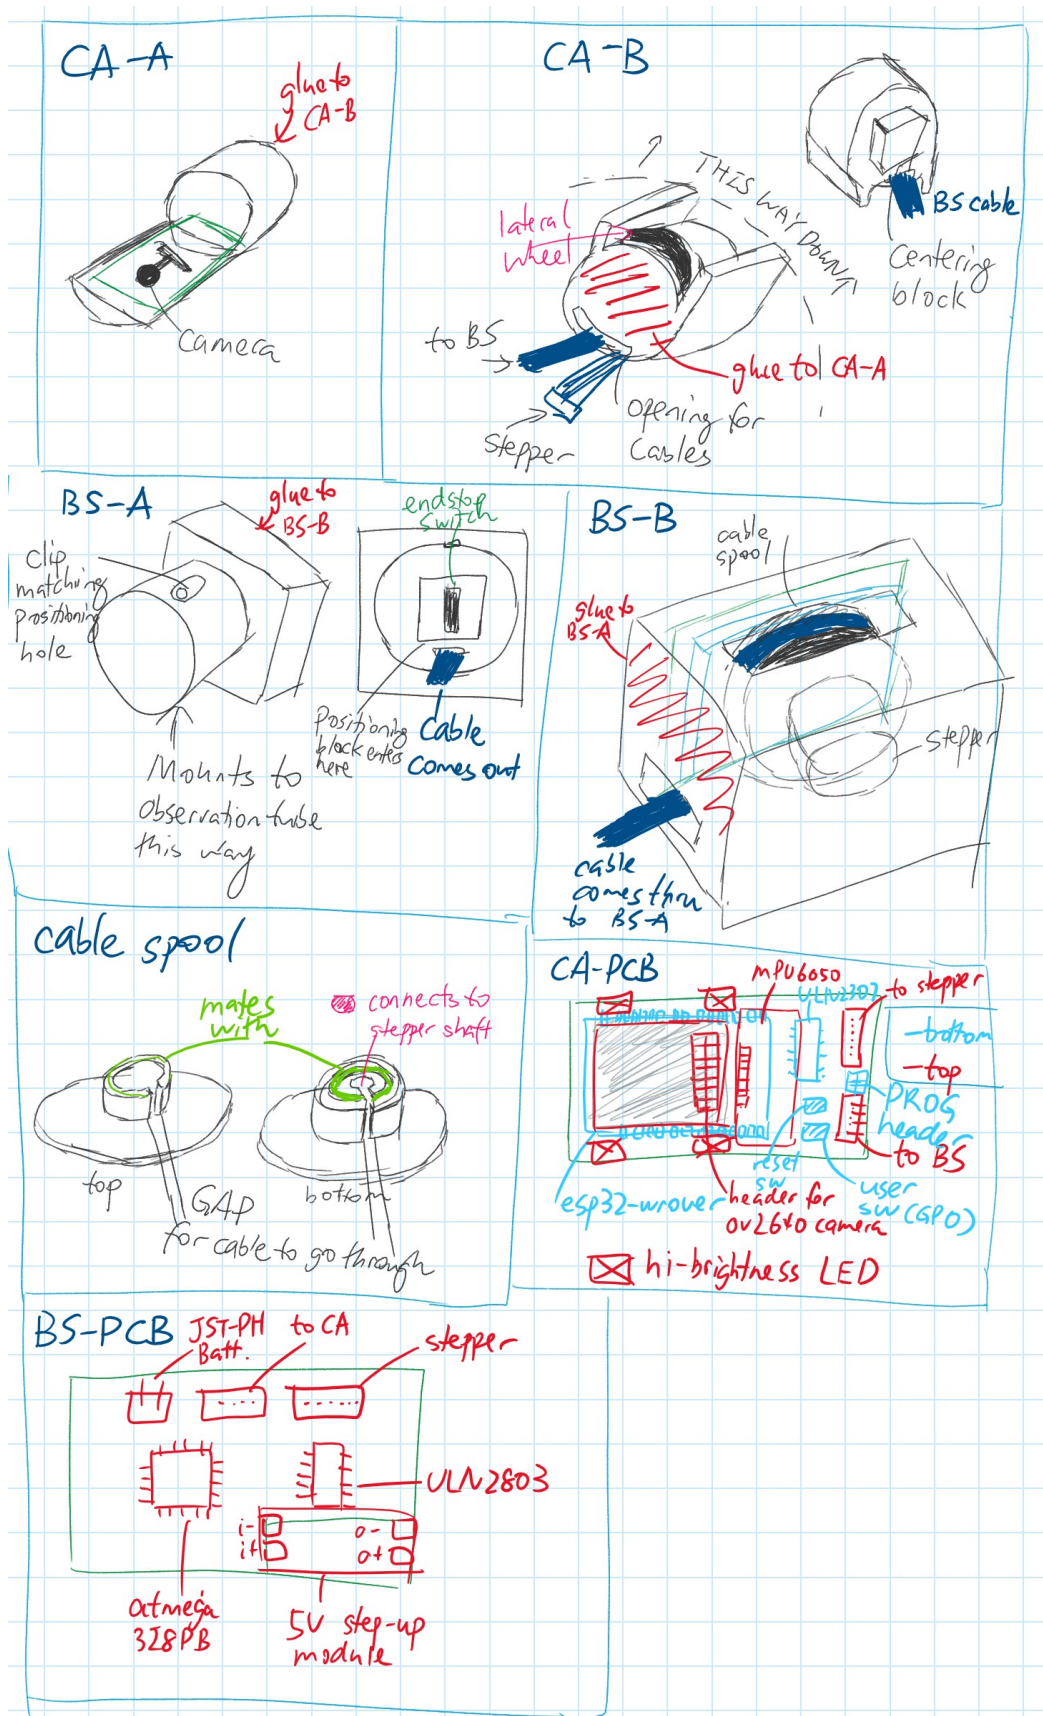 CA-A
glue to
CA-B
camera
CA-B
THIS WAY DOWN!
lateral
wheel
BS cable
Centering
block
to BS
glue to CA-A
stepper
opening for
Cables
BS-A
glue to
BS-B
clip
matching
positioning
hole
endstop
switch
Mounts to
observation tube
this way
Positioning
block enters
here
Cable
comes out
BS-B
cable
spool
glue to
BS-A
stepper
cable
comes thru
to BS-A
cable spool
mates
with
connects to
stepper shaft
top
bottom
GAP
for cable to go through
CA-PCB
MPU6050
ULN2303
to stepper
-bottom
-top
PROG
header
to BS
reset
sw
user
SW (GPO)
esp32-wrover
header for
ov2640 camera
hi-brightness LED
BS-PCB
JST-PH
Batt.
to CA
stepper
ULN2803
i-
i+
o-
o+
atmega
328PB
5V step-up
module